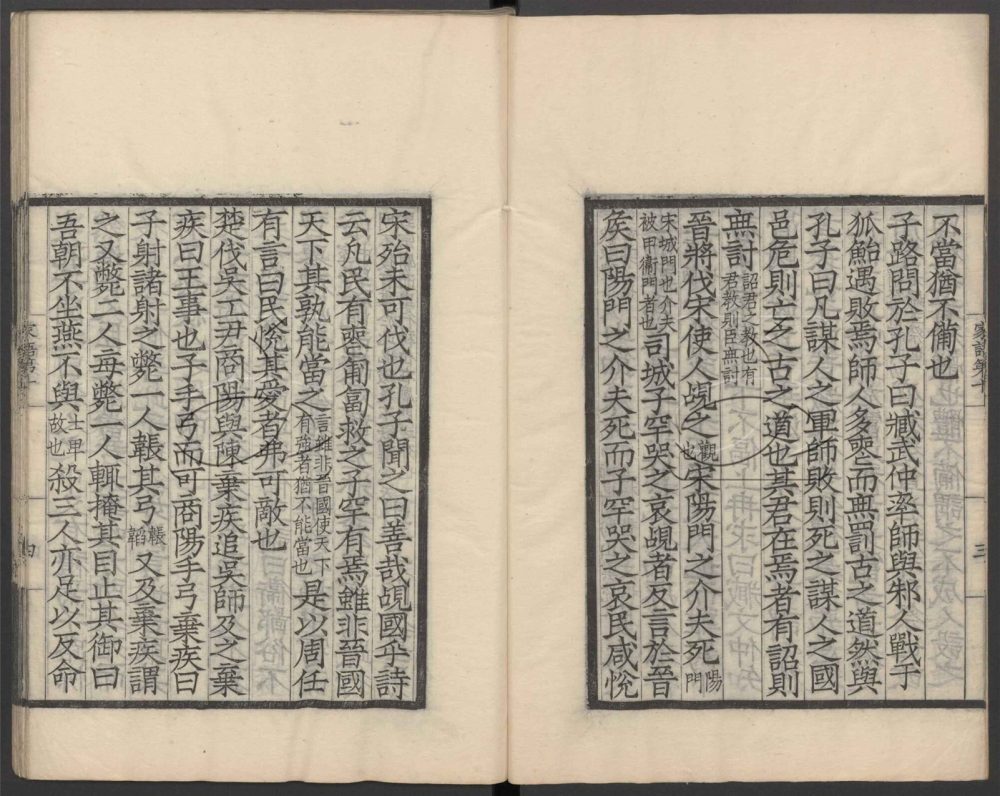 不當猶不備也
子路問於孔子曰臧武仲率師與邾人戰于
狐鮐遇敗焉師人多喪而無罰古之道然與
孔子曰凡謀人之軍師敗則死之謀人之國
邑危則亡之古之道也其君在焉者有詔則
無討詔君之教也有君教則臣無討
晉將伐宋使人覘之觀也宋陽門之介夫死陽門
宋城門也介夫被甲衞門者也司城子罕哭之哀覘者反言於晉
矦曰陽門之介夫死而子罕哭之哀民咸悅
宋殆未可伐也孔子聞之曰善哉覘國乎詩
云凡民有喪匍匐救之子罕有焉雖非晉國
天下其孰能當之言雖非晉國使天下有強者猶不能當也是以周任
有言曰民悅其愛者弗可敵也
楚伐吳工尹商陽與陳棄疾追吳師及之棄
疾曰王事也子手弓而可商陽手弓棄疾曰
子射諸射之斃一人韔其弓韔韜又及棄疾謂
之又斃二人每斃一人輒掩其目止其御曰
吾朝不坐燕不與士卑故也殺三人亦足以反命
三
四